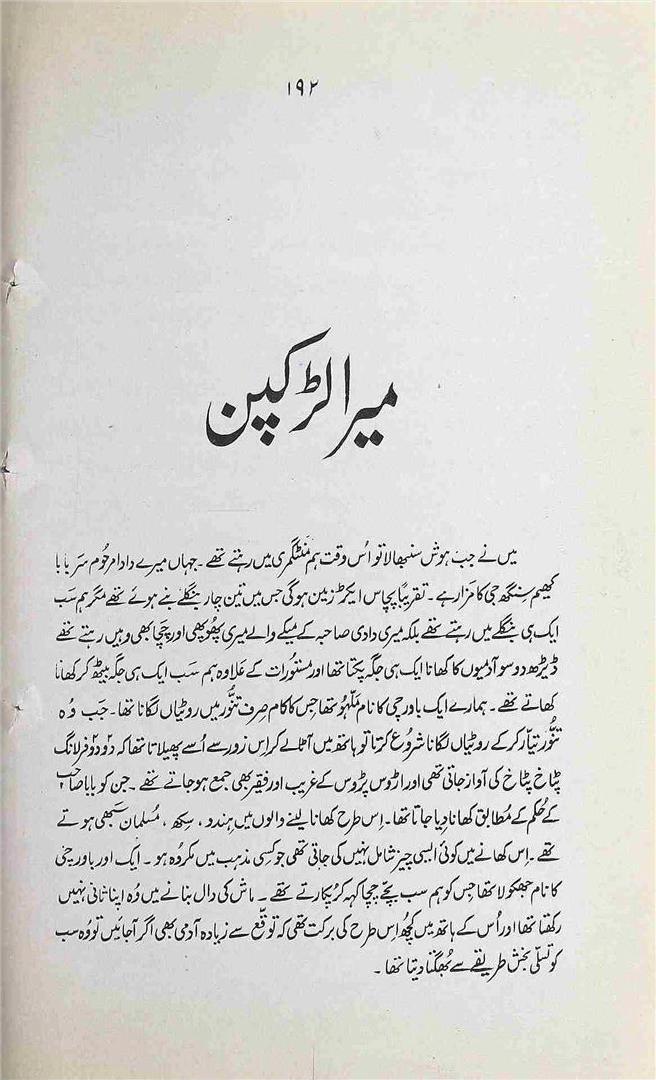 ۱۹۲
میرا لڑکپن
میں نے جب ہوش سنبھالا تو اُس وقت ہم منٹگمری میں رہتے تھے۔ جہاں میرے دادا مرحُوم سَر بابا
کھیم سِنگھ جی کا مزار ہے۔ تقریباً پچاس ایکڑ زمین ہوگی جس میں تین چار بنگلے بنے ہوئے تھے مگر ہم سَب
ایک ہی بنگلے میں رہتے تھے بلکہ میری دادی صاحبہ کے میکے والے میری پھُوپھی اور چچا بھی وہیں رہتے تھے
ڈیڑھ دو سو آدمیوں کا کھانا ایک ہی جگہ پکتا تھا اور مستُورات کے عَلاوہ ہم سَب ایک ہی جگہ بیٹھ کر کھانا
کھاتے تھے۔ ہمارے ایک باورچی کا نام مَلہُو تھا جس کا کام صِرف تنُّور میں روٹیاں لگانا تھا۔ جَب وُہ
تنُّور تیّار کر کے روٹیاں لگانا شرُوع کرتا تو ہاتھ میں آٹا لے کر اِس زور سے اُسے پھیلاتا تھا کہ دو دو فرلانگ
پٹاخ پٹاخ کی آواز جاتی تھی اور اڑوس پڑوس کے غریب اور فقیر بھی جمع ہو جاتے تھے۔ جن کو بابا صاحب
کے حُکم کے مُطابق کھانا دیا جاتا تھا۔ اِس طرح کھانا لینے والوں میں ہندو، سِکھ، مُسلمان سَبھی ہوتے
تھے۔ اِس کھانے میں کوئی ایسی چیز شامل نہیں کی جاتی تھی جو کسی مذہب میں مکرُوہ ہو۔ ایک اور باورچی
کا نام جھگولا تھا جس کو ہم سب بچّے چچا کہہ کر پُکارتے تھے۔ ماش کی دال بنانے میں وُہ اپنا ثانی نہیں
رکھتا تھا اور اُس کے ہاتھ میں کُچھ اِس طرح کی برکت تھی کہ توقّع سے زیادہ آدمی بھی اگر آ جائیں تو وُہ سب
کو تسلّی بخش طریقے سے بھُگتا دیتا تھا۔